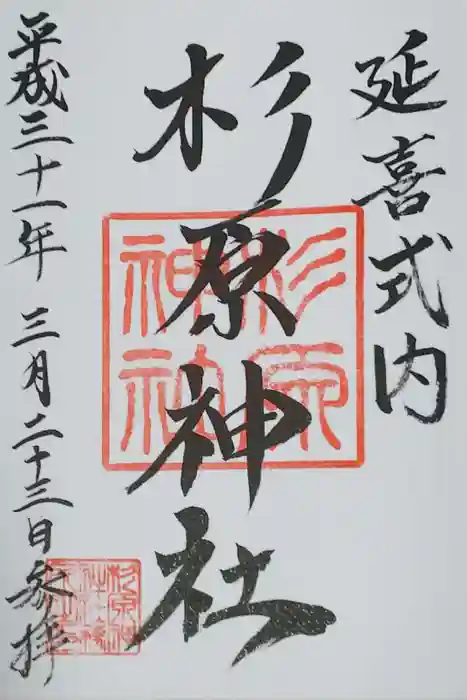 延喜式内
杉原神社
杉原
神社
平成三十一年 三月二十三日参拝